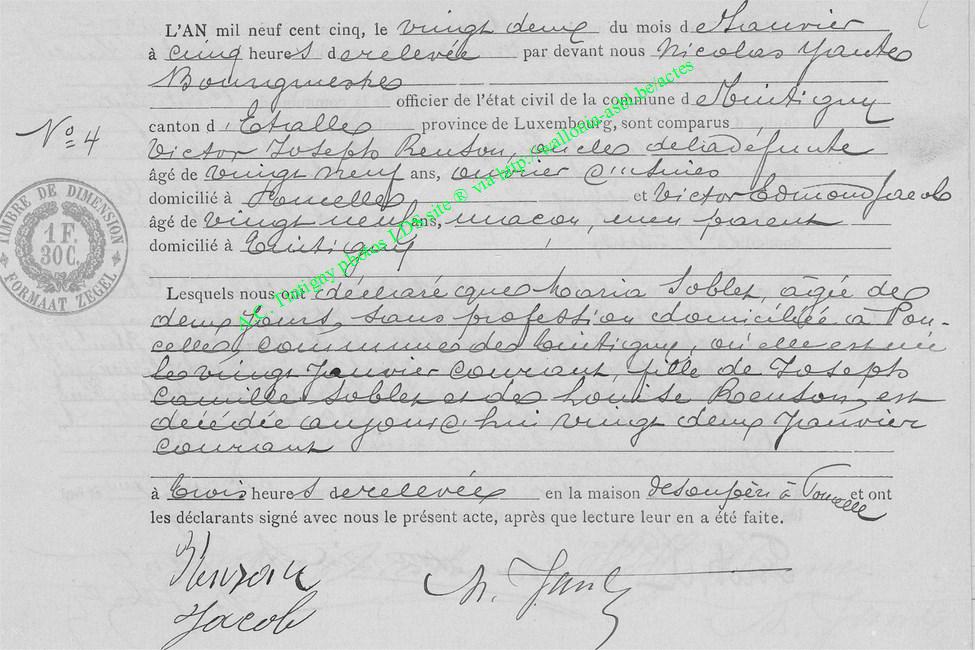 L'AN mil neuf cent cinq, le vingt deux du mois de Janvier
à cinq heures de relevée par devant nous Nicolas
Bourgmestre
officier de l'état civil de la commune de Tintigny
canton d'Etalle province de Luxembourg, sont comparus
No 4
Victor Joseph Renson, oncle de la défunte
âgé de vingt neuf ans, ouvrier d'usines
domicilié à Poncelle et Victor Edmond Jacob
âgé de vingt neuf ans, maçon, non parent
domicilié à Tintigny
TIMBRE DE DIMENSION
1 F.
30 C.
FORMAAT ZEGEL
A.C. Tintigny photos LDS site ® via http://wallonia-asbl.be/actes
Lesquels nous ont déclaré que Maria Soblet, âgée de
deux jours, sans profession domiciliée à Pon-
celle, commune de Tintigny, où elle est née
le vingt Janvier courant, fille de Joseph
Camille Soblet et de Louise Renson, est
décédée aujourd'hui vingt deux Janvier
courant
à trois heures de relevée en la maison de son père à Poncelle et ont
les déclarants signé avec nous le présent acte, après que lecture leur en a été faite.
Renson
Jacob